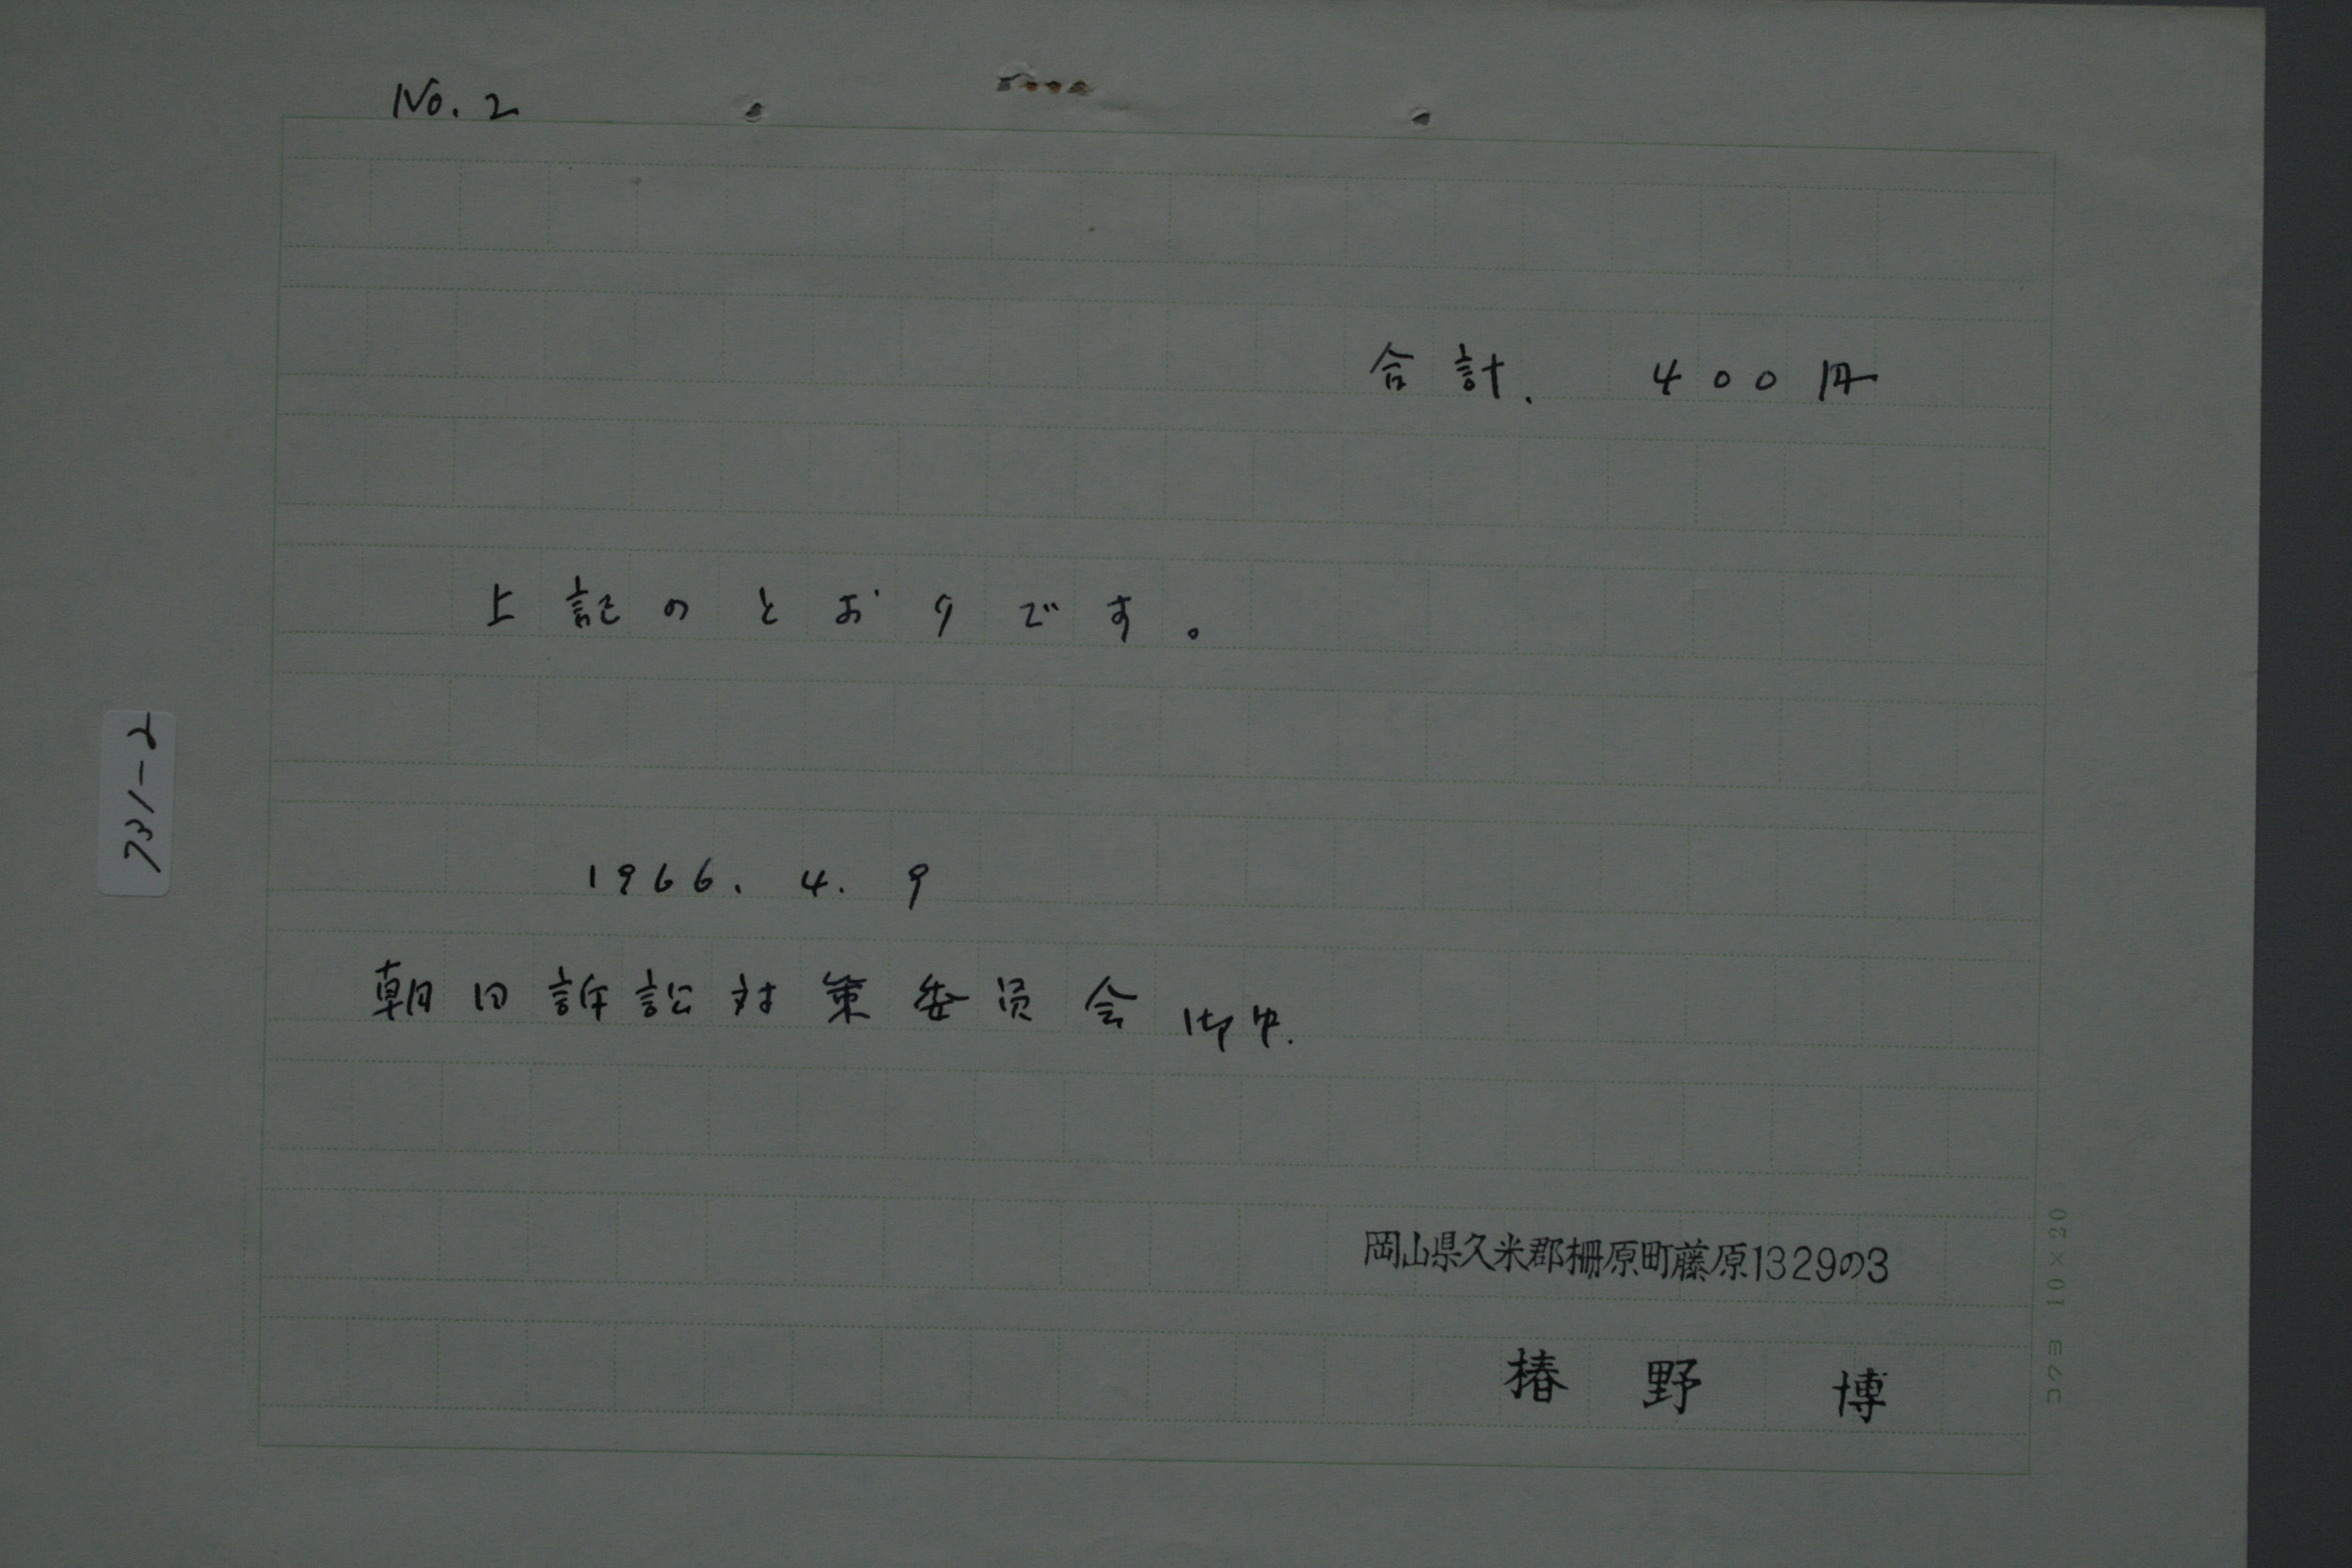 No. 2
合計. 400円
上記のとおりです。
731-2
1966. 4. 9
朝日訴訟対策委員会 御中.
岡山県久米郡柵原町藤原1329の3
椿野 博
コクヨ 10×20